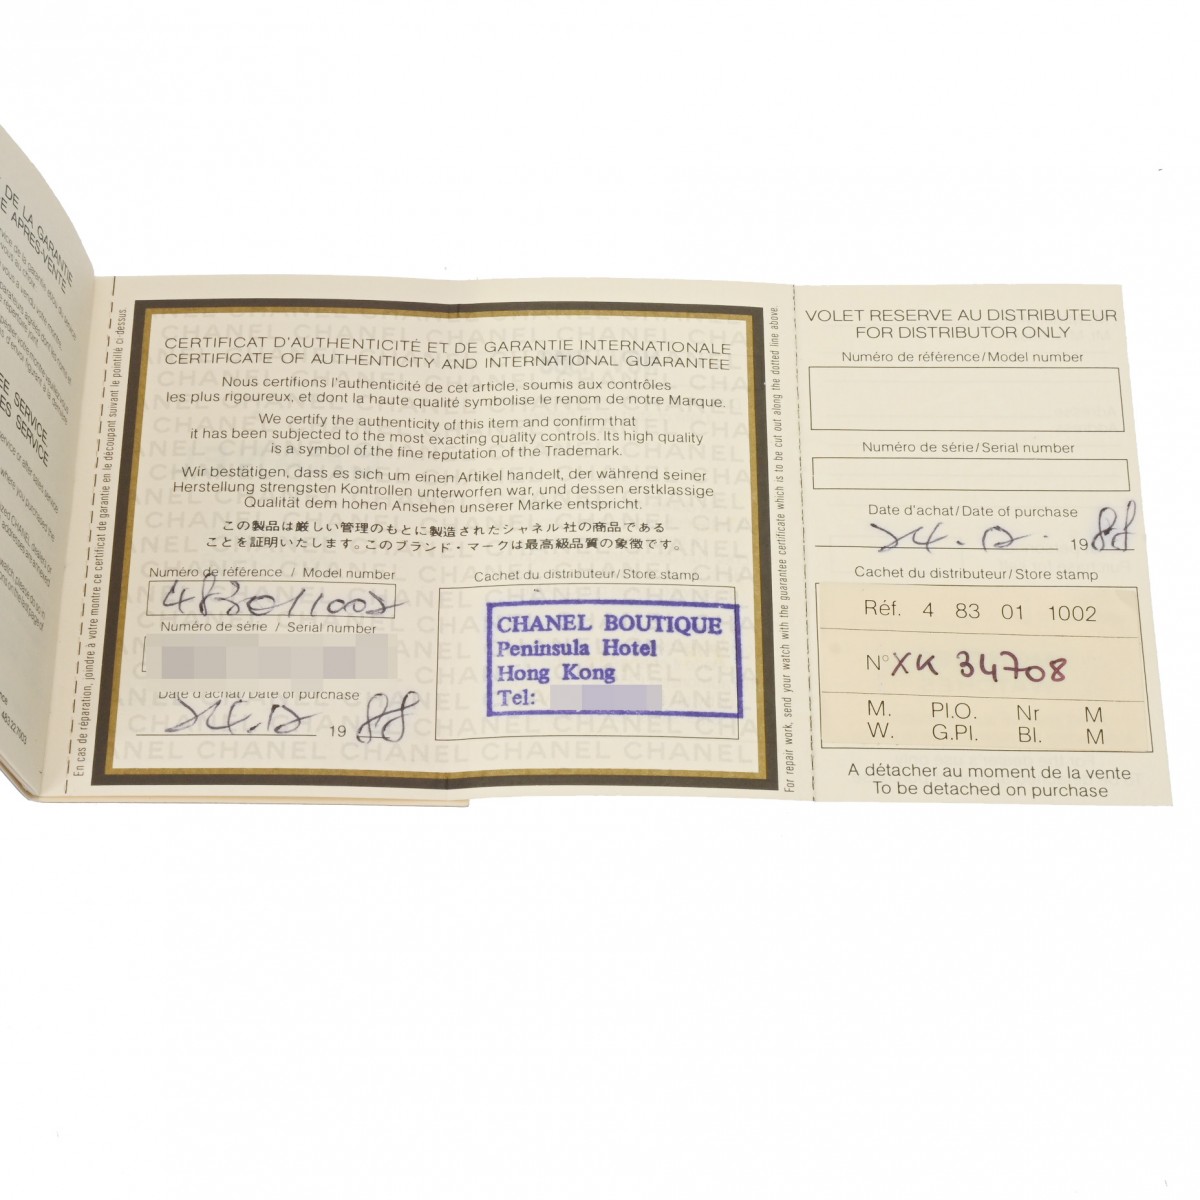 DE LA GARANTIE
APRES-VENTE
SERVICE
En cas de réparation, joindre à votre montre ce certificat de garantie en le découpant suivant le pointillé ci-dessus.
CERTIFICAT D'AUTHENTICITÉ ET DE GARANTIE INTERNATIONALE
CERTIFICATE OF AUTHENTICITY AND INTERNATIONAL GUARANTEE
Nous certifions l'authenticité de cet article, soumis aux contrôles
les plus rigoureux, et dont la haute qualité symbolise le renom de notre Marque.
We certify the authenticity of this item and confirm that
it has been subjected to the most exacting quality controls. Its high quality
is a symbol of the fine reputation of the Trademark.
Wir bestätigen, dass es sich um einen Artikel handelt, der während seiner
Herstellung strengsten Kontrollen unterworfen war, und dessen erstklassige
Qualität dem hohen Ansehen unserer Marke entspricht.
この製品は厳しい管理のもとに製造されたシャネル社の商品である
ことを証明いたします。このブランド・マークは最高級品質の象徴です。
Numéro de référence / Model number
483011002
Numéro de série / Serial number
Date d'achat/Date of purchase
24.12 1988
Cachet du distributeur/Store stamp
CHANEL BOUTIQUE
Peninsula Hotel
Hong Kong
Tel:
For repair work, send your watch with the guarantee certificate which is to be cut out along the dotted line above.
VOLET RESERVE AU DISTRIBUTEUR
FOR DISTRIBUTOR ONLY
Numéro de référence/Model number
Numéro de série/Serial number
Date d'achat/Date of purchase
24.12. 1988
Cachet du distributeur/Store stamp
Réf. 4 83 01 1002
N° XK 34708
M. Pl.O. Nr M
W. G.Pl. Bl. M
A détacher au moment de la vente
To be detached on purchase